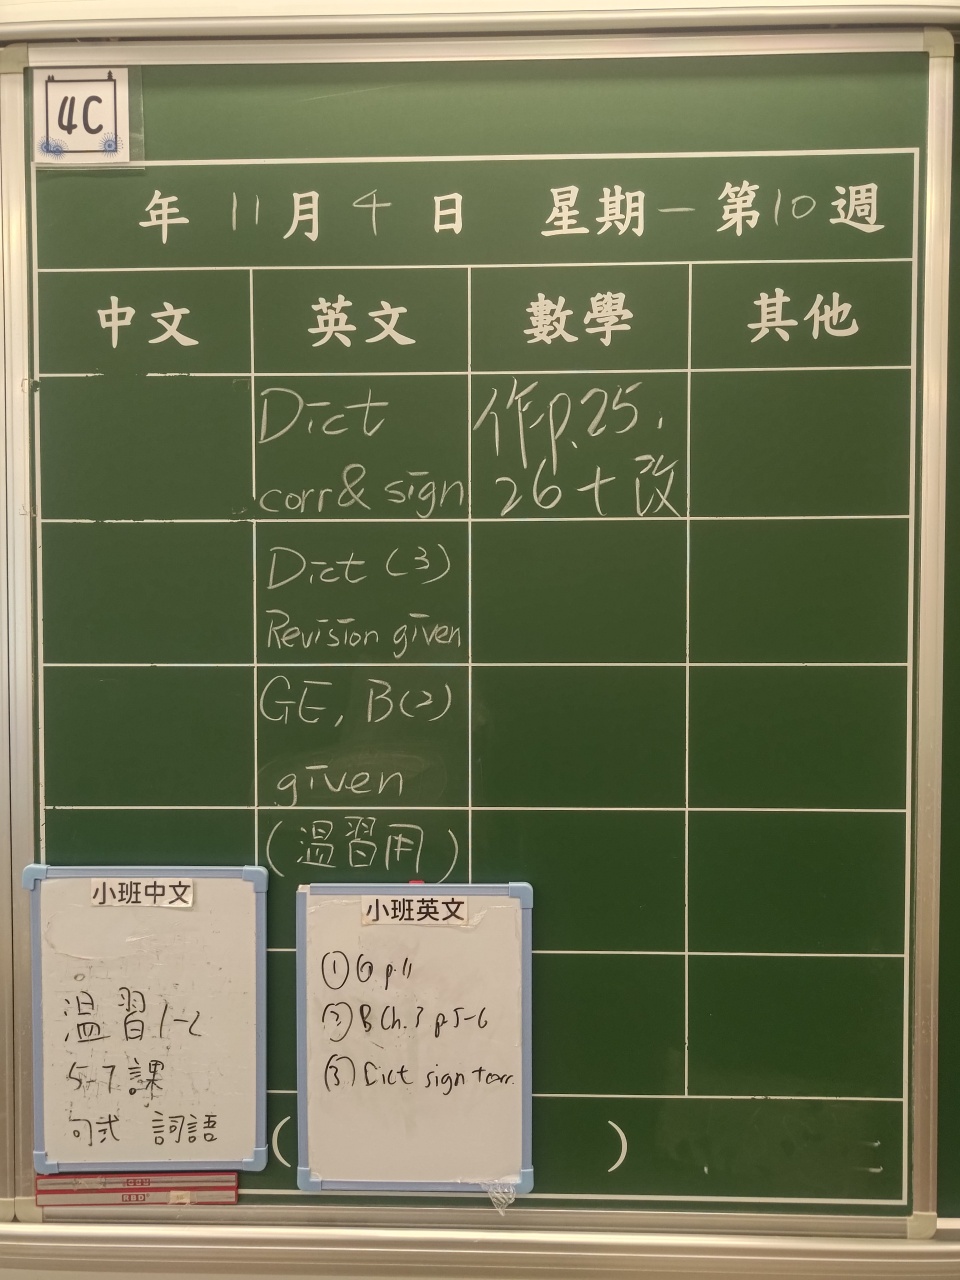 4C
年 11 月 4 日 星期一 第10週
中文 英文 數學 其他
Dict
corr & sign
作p.25,
26+改
Dict (3)
Revision given
GE, B(2)
given
(溫習用)
小班中文
溫習1-2
5-7課
句式 詞語
小班英文
① G p.11
② B Ch.3 p5-6
③ Dict sign + corr.
( )